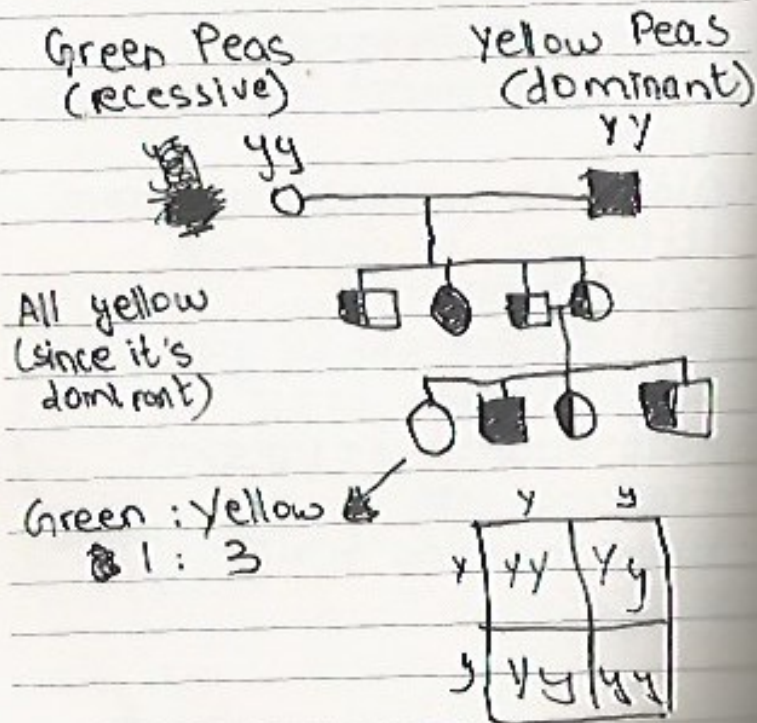 Green Peas
(recessive)
Yellow Peas
(dominant)
yy
YY
All yellow
(since it's
dominant)
Green : Yellow
1 : 3
Y y
Y YY Yy
y Yy yy